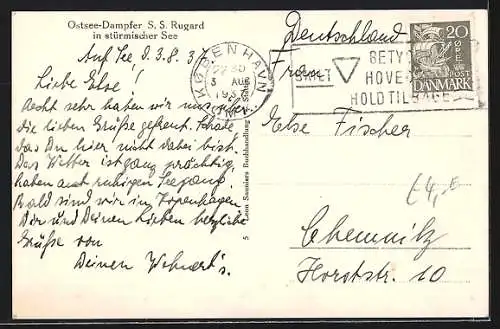 Ostsee-Dampfer S. S. Rugard
in stürmischer See
Auf See d. 3.8.3
Liebe Else!
Recht sehr haben wir uns über
die lieben Grüße gefreut. Schade
das Du hier nicht dabei bist.
Das Wetter ist ganz prächtig,
haben auch ruhigen Seegang.
Bald sind wir in Kopenhagen
Dir und Deinen Lieben herzliche
Grüße von
Deinen
5 Leon Sauniers Buchhandlung
KØBENHAVN
3 AUG
193
SKIFTET
BETY
HOVE
HOLD TIL
20
ØRE
POST
DANMARK
Deutschland
Else Fischer
£4,-
Chemnitz
Horststr. 10